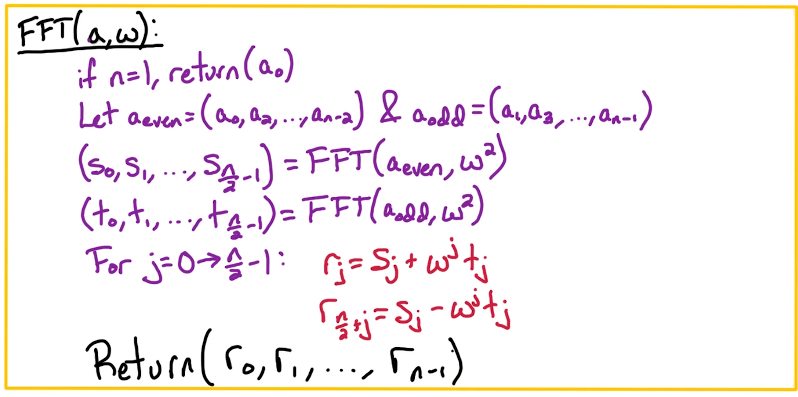 FFT(a,ω):
if n=1, return(a₀)
Let a_even=(a₀,a₂,...,a_{n-2}) & a_odd=(a₁,a₃,...,a_{n-1})
(s₀,s₁,...,s_{n/2-1})=FFT(a_even,ω²)
(t₀,t₁,...,t_{n/2-1})=FFT(a_odd,ω²)
For j=0→n/2-1: r_j=s_j+ω^j t_j
r_{n/2+j}=s_j-ω^j t_j
Return(r₀,r₁,...,r_{n-1})